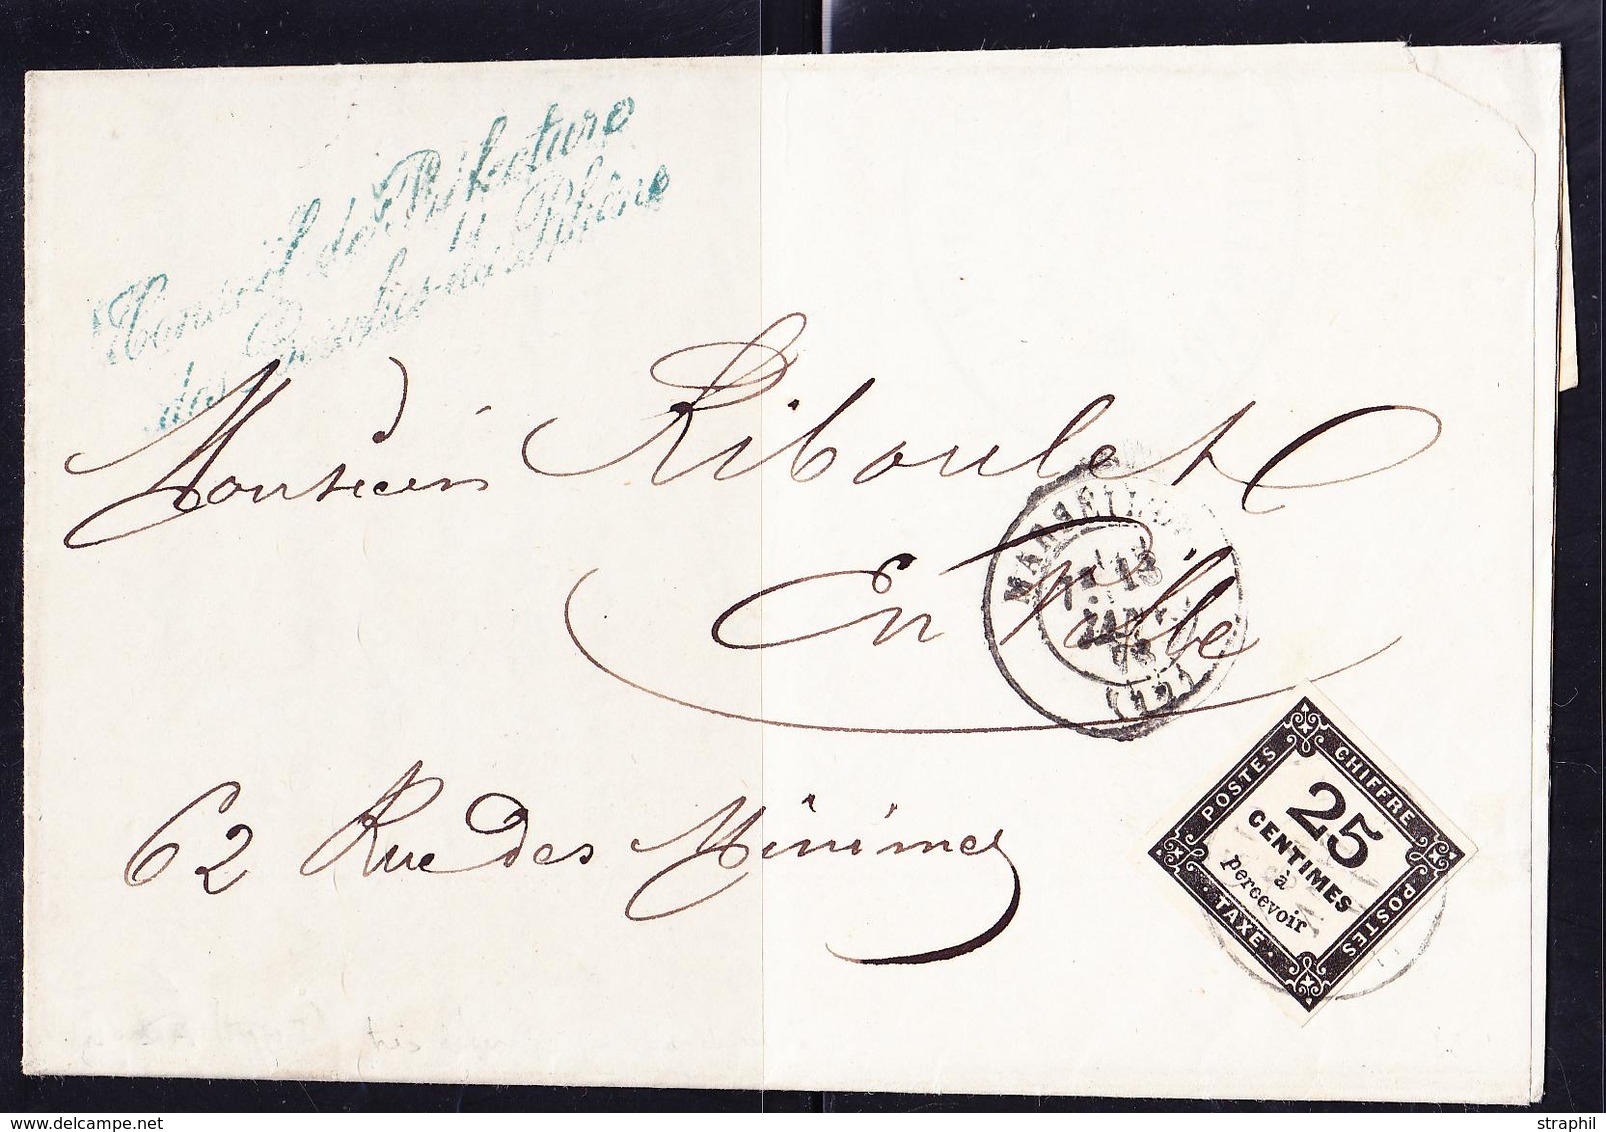 Conseil de Préfecture
des Bouches-du-Rhône
Monsieur Riboulet
En Ville
MARSEILLE
13
JANV.
62 Rue des Minimes
POSTES
CHIFFRE
POSTES
TAXE
25
CENTIMES
à
percevoir
www.delcampe.net
straphil